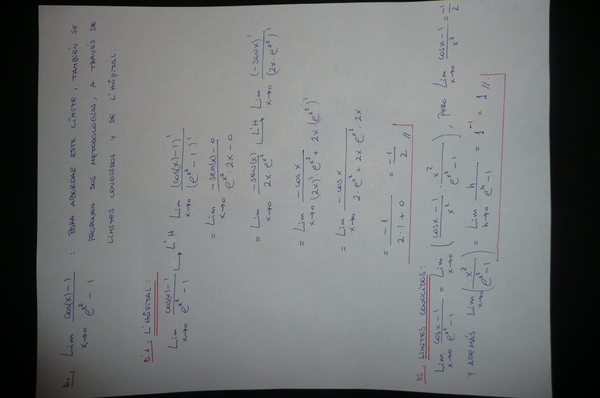 b. Lim x→0 cos(x)-1 / e^x² - 1 : PARA ABORDAR ESTE LÍMITE, TAMBIÉN SE
PROPONEN DOS METODOLOGÍAS, A TRAVÉS DE
LÍMITES CONOCIDOS Y DE L'HÔPITAL.
b.1. L'HÔPITAL:
Lim x→0 cos(x)-1 / e^x² - 1 → L'H Lim x→0 (cos(x)-1)' / (e^x² - 1)'
= Lim x→0 -sen(x)-0 / e^x² 2x - 0
= Lim x→0 -sen(x) / 2x·e^x² → L'H Lim x→0 (-sen(x))' / (2x·e^x²)'
= Lim x→0 -cos x / (2x)' e^x² + 2x·(e^x²)'
= Lim x→0 -cos x / 2·e^x² + 2x·e^x²·2x
= -1 / 2·1+0 = -1/2 //
b2. LÍMITES CONOCIDOS:
Lim x→0 cos x-1 / e^x² - 1 = Lim x→0 (cos x-1 / x² · x² / e^x² - 1), pero Lim x→0 cos x-1 / x² = -1/2
Y ADEMÁS Lim x→0 (x² / e^x² - 1) = Lim h→0 h / e^h - 1 = 1^-1 = 1 //.